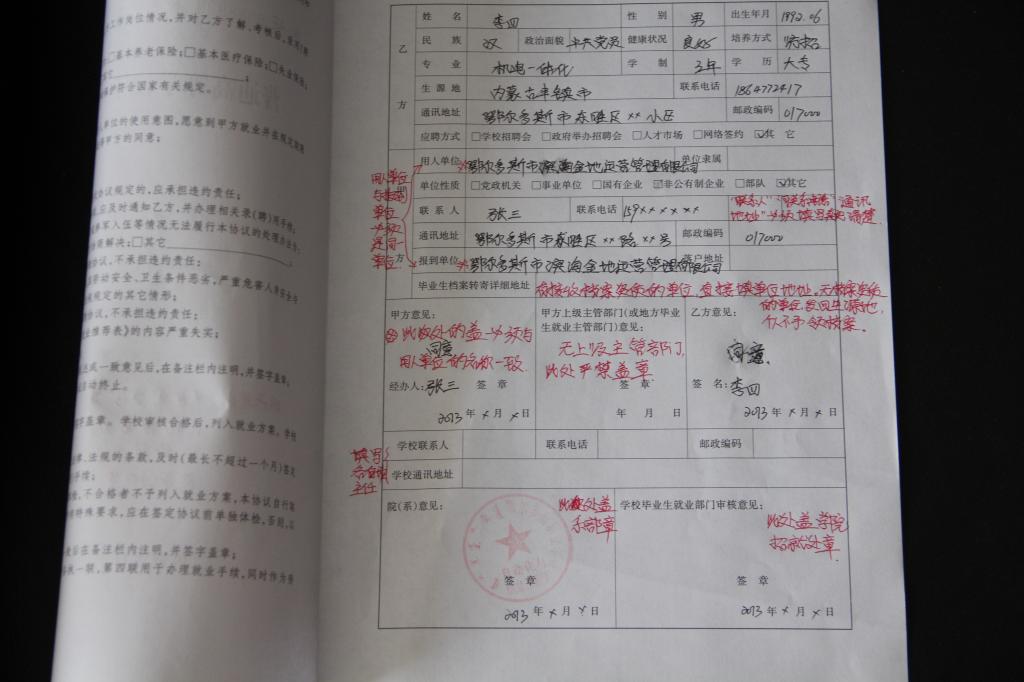 工作岗位情况，并对乙方了解、考核后，
□基本养老保险；□基本医疗保险；□失业保险；
符合国家有关规定。
单位的使用意图，愿意到甲方就业并在规定期限
甲方的同意；
协议规定的，应承担违约责任；
应及时通知乙方，并办理相关录(聘)用手续；
参军入伍等情况无法履行本协议的处理办法：
解决；□其它
协议，不承担违约责任：
劳动安全、卫生条件恶劣，严重危害人身安全
规规定的其它情形；
协议，不承担违约责任：
业推荐表》的内容严重失实；
达成一致意见后，在备注栏内注明，并签字盖章；
自动终止。
字盖章。学校审核合格后，列入就业方案。学校
章、法规的条款，及时(最长不超过一个月)签定
手续；
检，不合格者不予列入就业方案，本协议自行
特殊要求，应在签定协议前单独体检，否则，
后在备注栏内注明，并签字盖章；
执一联，第四联用于办理就业手续，同时作为
姓 名 李四 性 别 男 出生年月 1992.06
民 族 汉 政治面貌 中共党员 健康状况 良好 培养方式
专 业 机电一体化 学 制 3年 学 历 大专
乙方
生 源 地 内蒙古丰镇市 联系电话 1864772417
通讯地址 鄂尔多斯市东胜区××小区 邮政编码 017000
应聘方式 □学校招聘会 □政府举办招聘会 □人才市场 □网络签约 ☑其 它
用人单位 *鄂尔多斯市滨海金地运营管理有限公司 单位隶属
用人单位与报到单位必须是同一单位.
单位性质 □党政机关 □事业单位 □国有企业 ☑非公有制企业 □部队 ☑其它
联 系 人 张三 联系电话 159×××××× "联系人""联系电话""通讯地址"必须填写清楚
通讯地址 鄂尔多斯市东胜区××路××号 邮政编码 017000
方 报到单位 *鄂尔多斯市滨海金地运营管理有限公司 落户地址
毕业生档案转寄详细地址 有接收档案资质的单位,直接填单位地址,无档案资质的单位,发回生源地,
个人不予领档案.
甲方意见：
⊗此处的盖章必须与用人单位的名称一致.
同意
经办人:张三 签 章
2013年×月×日
甲方上级主管部门(或地方毕业生就业主管部门)意见：
无上级主管部门,
此处严禁盖章
签 章
年 月 日
乙方意见：
同意.
签 名：李四
2013年×月×日
学校联系人 联系电话 邮政编码
学校通讯地址
填写各班班主任
院(系)意见：
此处盖系部章
签 章
2013年×月×日
学校毕业生就业部门审核意见：
此处盖学院招就处章.
签 章
2013年×月×日